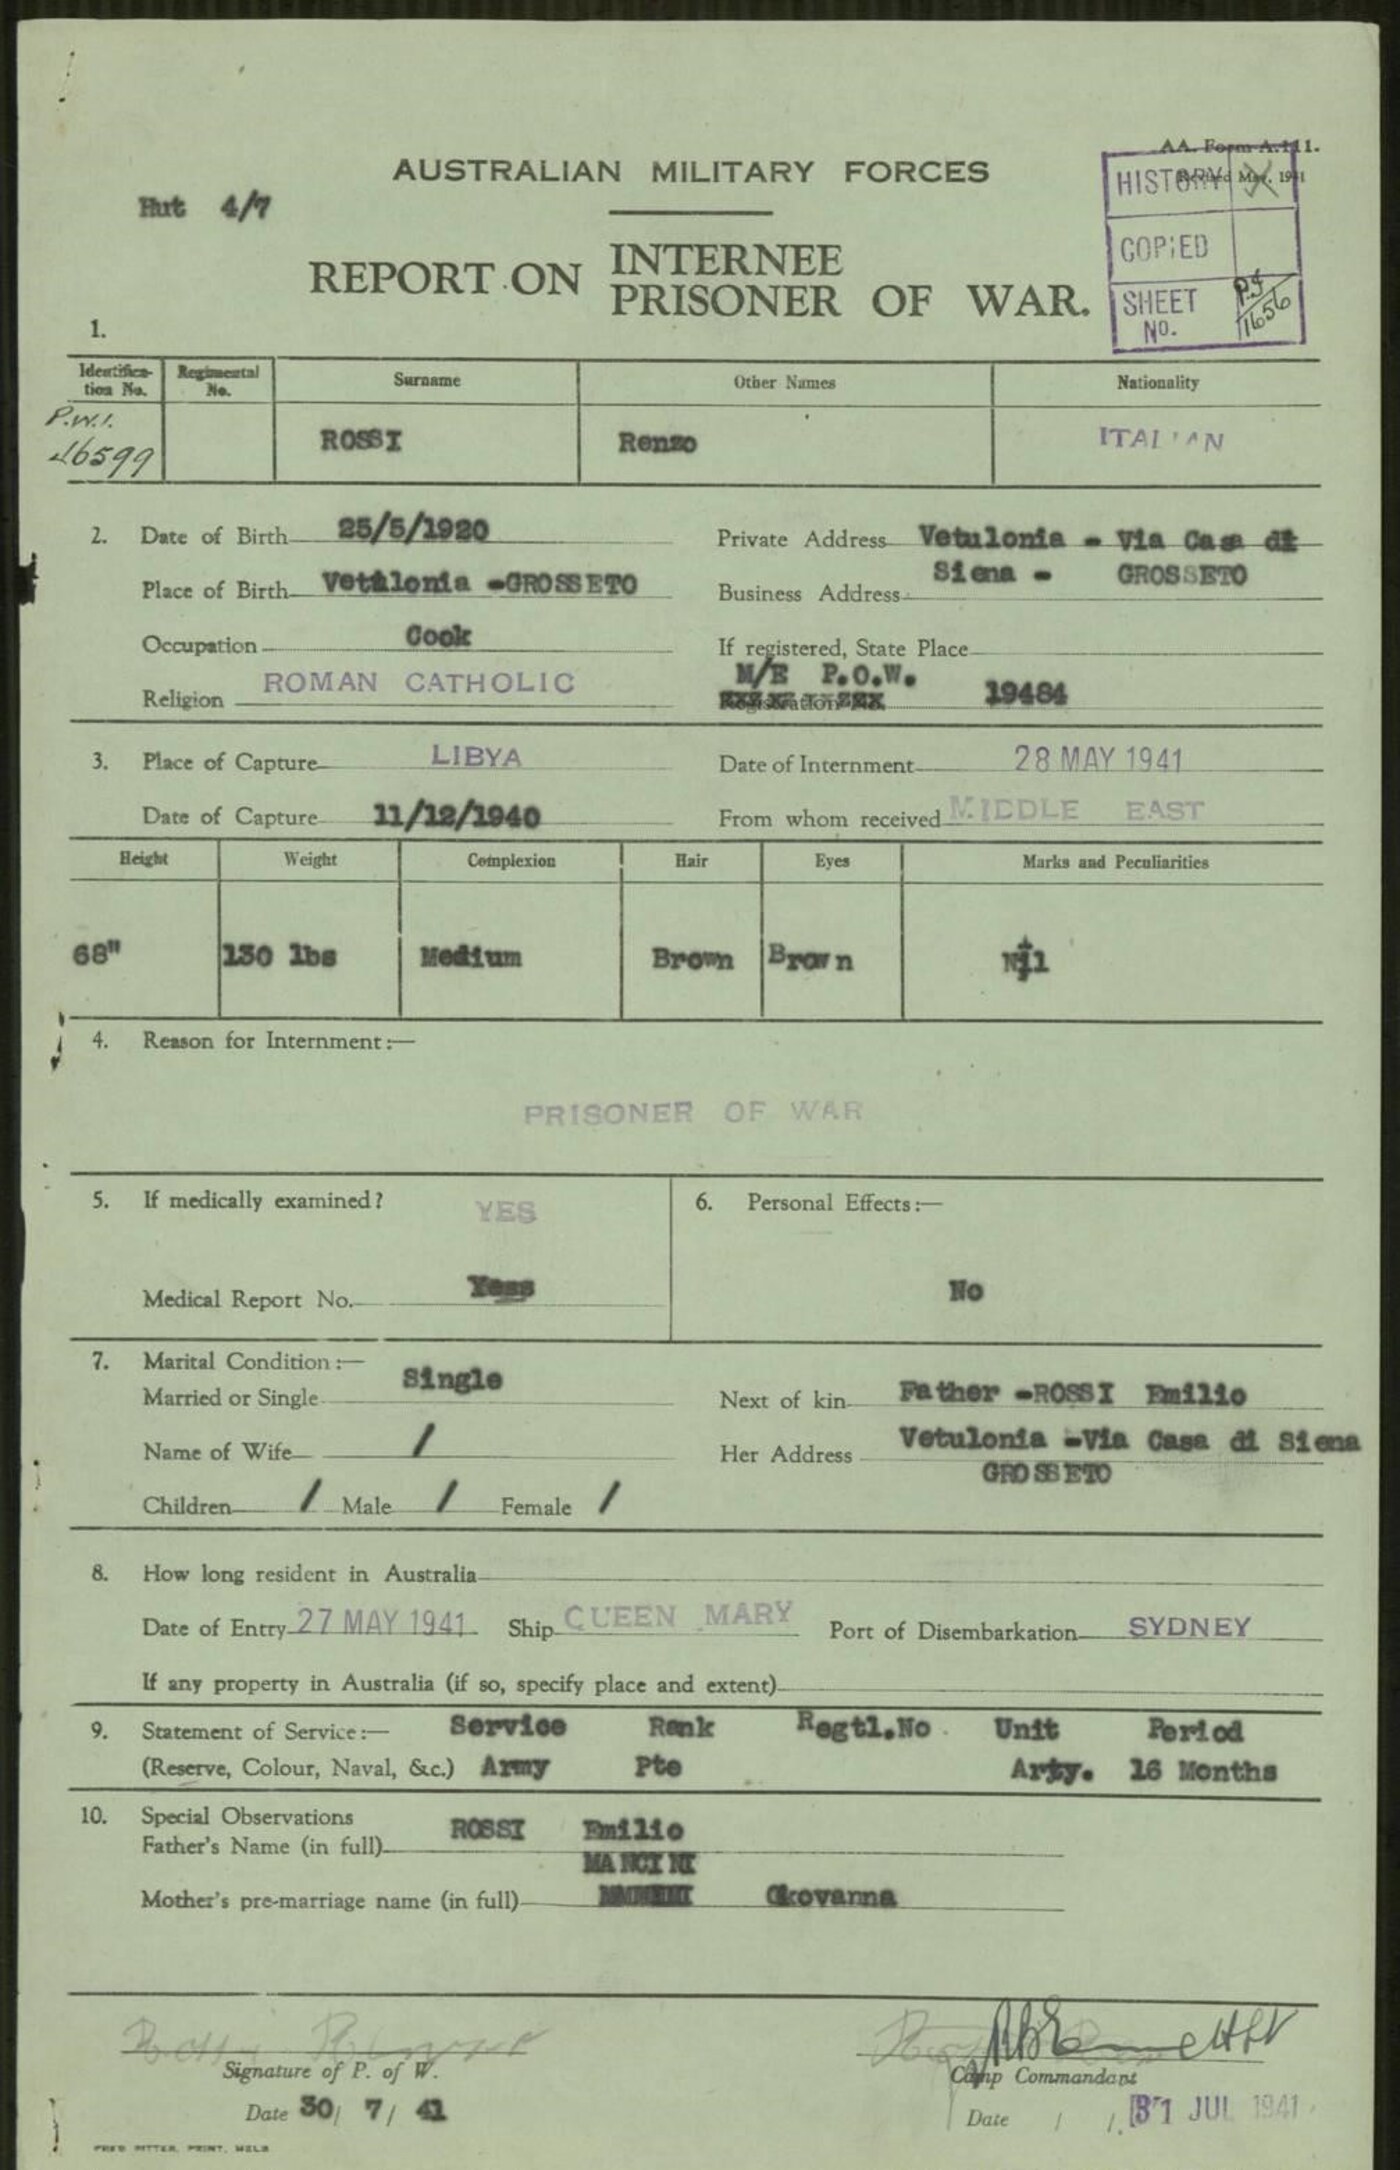 AA. Form A.111.
AUSTRALIAN MILITARY FORCES
HISTORY X
Hut 4/7
COPIED
REPORT ON INTERNEE
PRISONER OF WAR.
SHEET No. 1656
1.
Identification No. Regimental No. Surname Other Names Nationality
P.W.I. 46599 ROSSI Renzo ITALIAN
2. Date of Birth 25/5/1920 Private Address Vetulonia - Via Casa di
Siena - GROSSETO
Place of Birth Vetulonia -GROSSETO Business Address
Occupation Cook If registered, State Place
M/E P.O.W. 19484
Religion ROMAN CATHOLIC
3. Place of Capture LIBYA Date of Internment 28 MAY 1941
Date of Capture 11/12/1940 From whom received MIDDLE EAST
Height Weight Complexion Hair Eyes Marks and Peculiarities
68" 130 lbs Medium Brown Brown Nil
4. Reason for Internment:—
PRISONER OF WAR
5. If medically examined? YES 6. Personal Effects:—
Medical Report No. Yess No
7. Marital Condition:—
Married or Single Single Next of kin Father -ROSSI Emilio
Name of Wife / Her Address Vetulonia -Via Casa di Siena
GROSSETO
Children / Male / Female /
8. How long resident in Australia
Date of Entry 27 MAY 1941 Ship QUEEN MARY Port of Disembarkation SYDNEY
If any property in Australia (if so, specify place and extent)
9. Statement of Service:— Service Rank Regtl.No Unit Period
(Reserve, Colour, Naval, &c.) Army Pte Arty. 16 Months
10. Special Observations
Father's Name (in full) ROSSI Emilio
MANCINI
Mother's pre-marriage name (in full) Giovanna
Rossi Renzo
Signature of P. of W. Camp Commandant
Date 30/ 7/ 41 Date / /. 31 JUL 1941